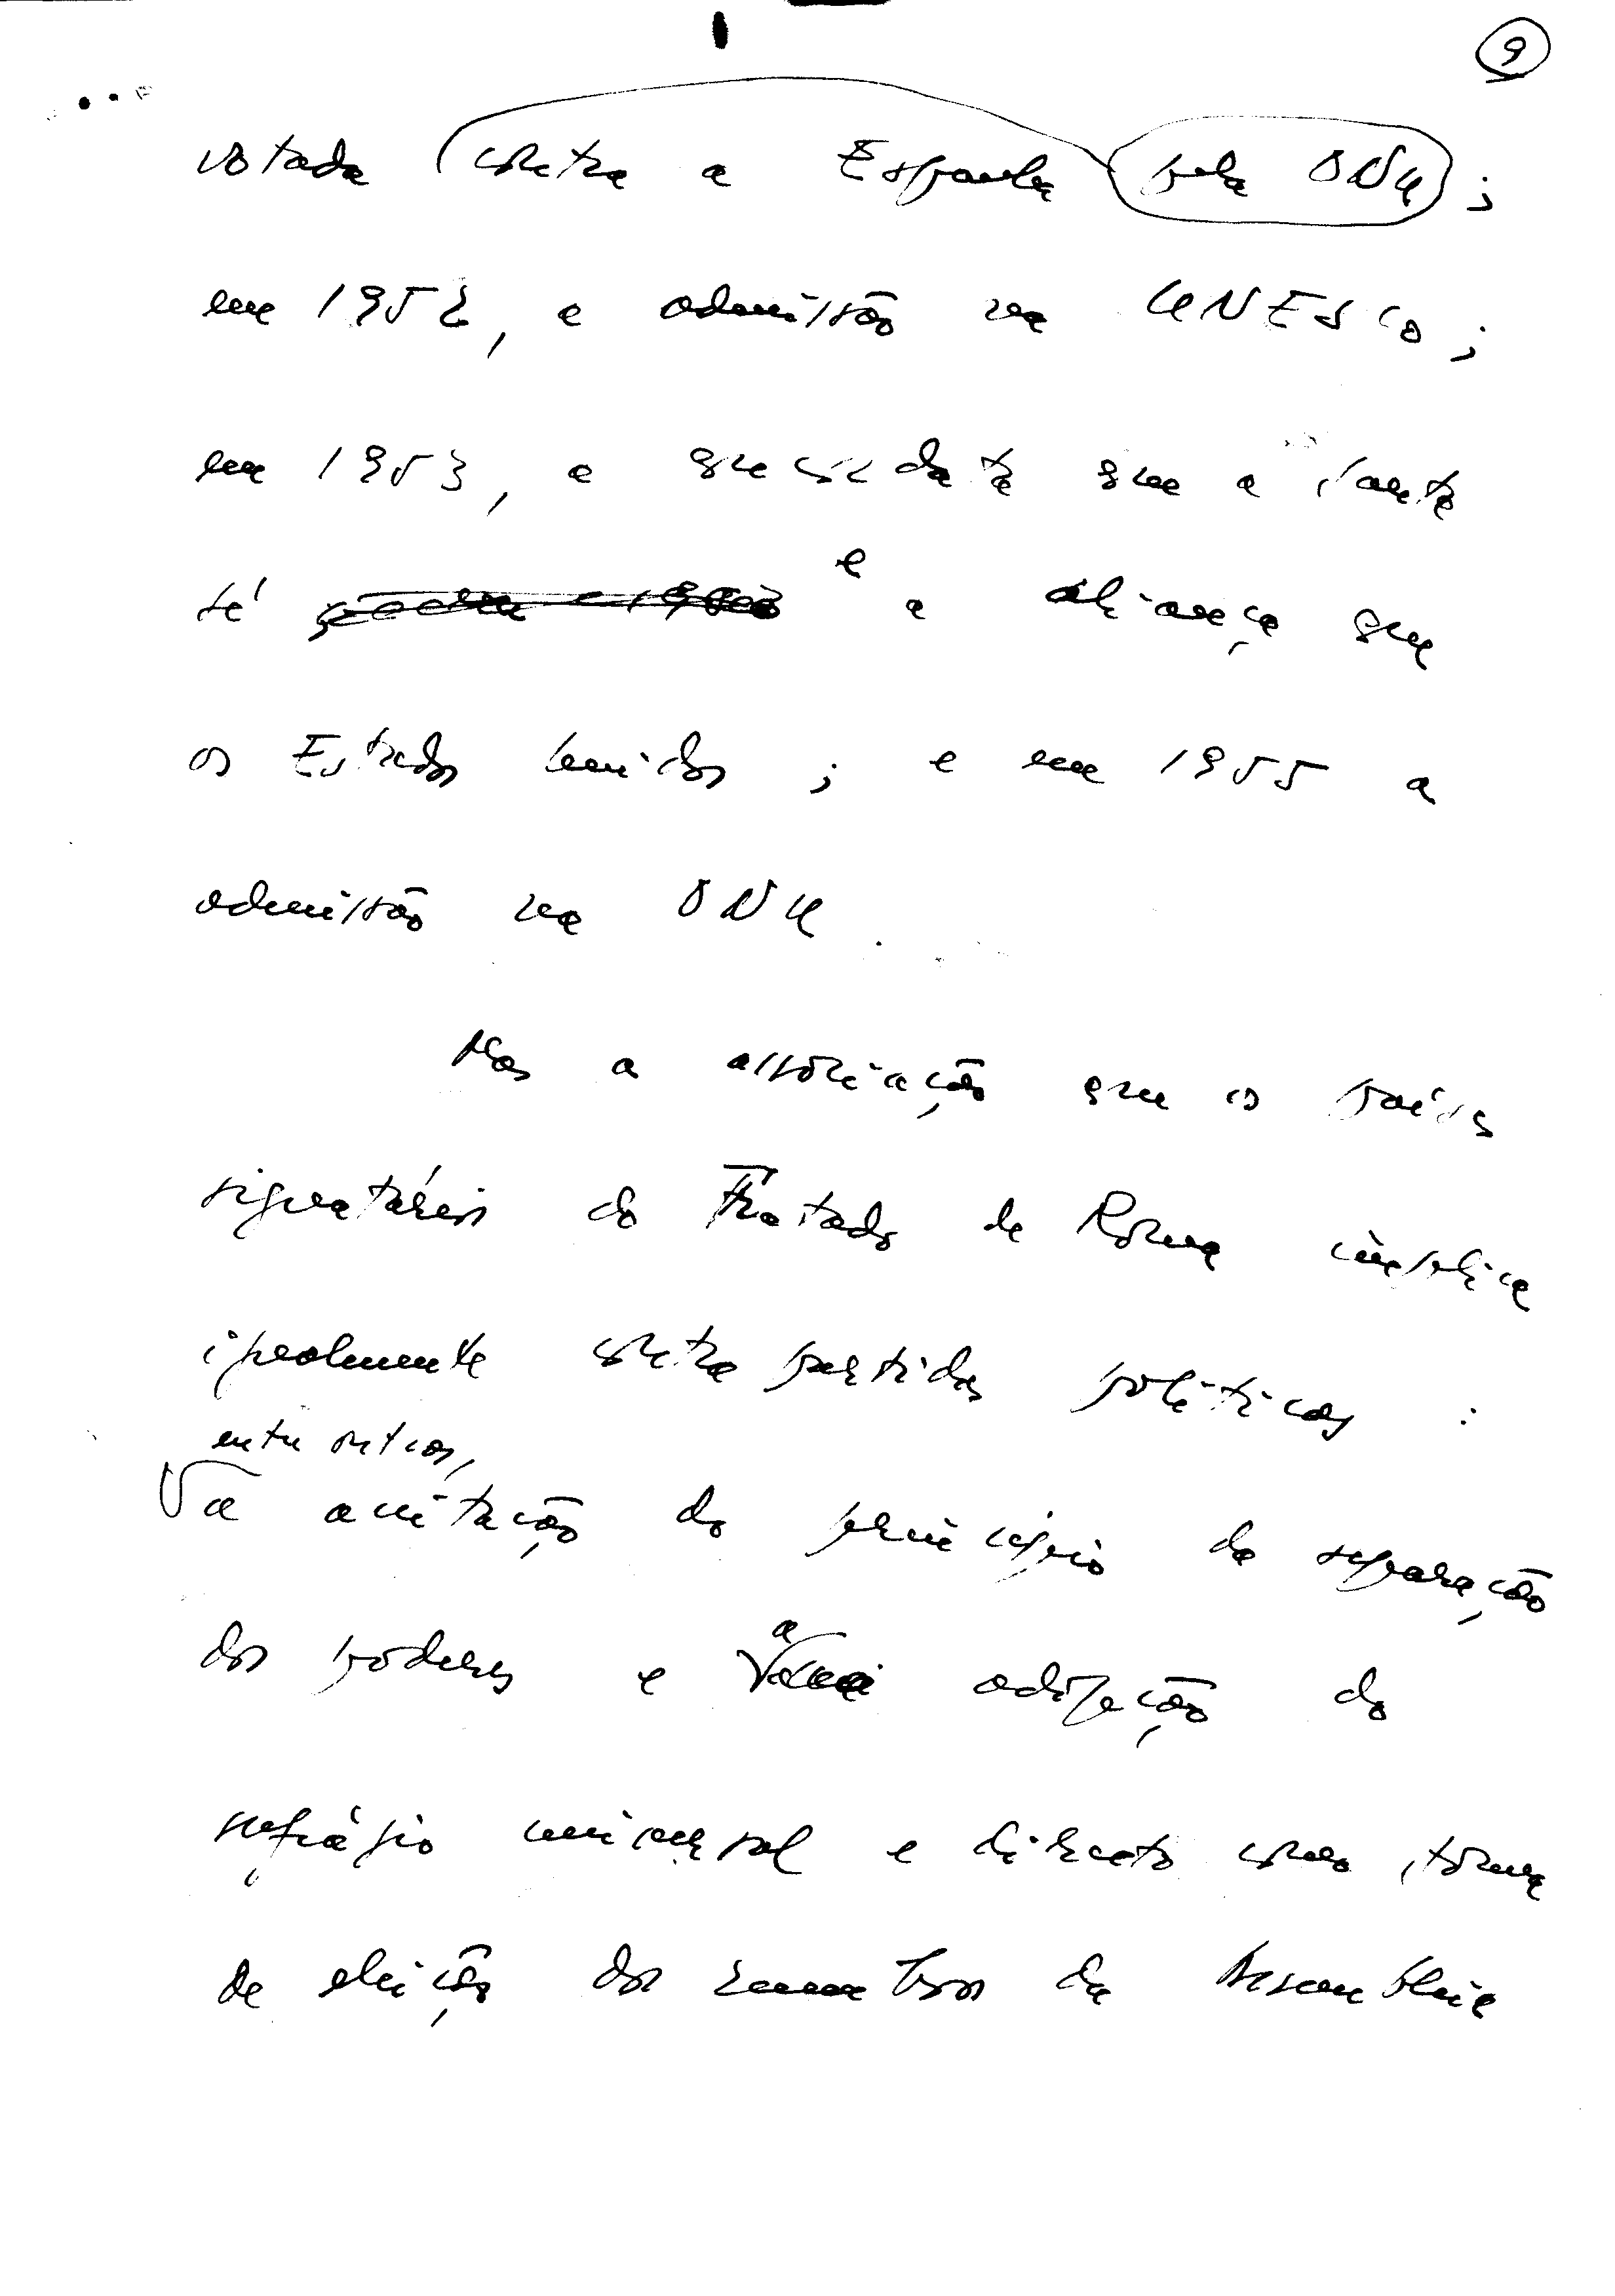 9
votada contra a Espanha pela ONU ;
em 1952, a admissão na UNESCO ;
em 1953, a concordata com a Santa
Sé e a aliança com
os Estados Unidos ; e em 1955 a
admissão na ONU.
Mas a associação com os países
signatários do Tratado de Roma implica
igualmente contrapartidas políticas :
entre outras,
a aceitação do princípio da separação
dos poderes e a adopção do
sufrágio universal e directo como forma
de eleição dos membros da Assembleia